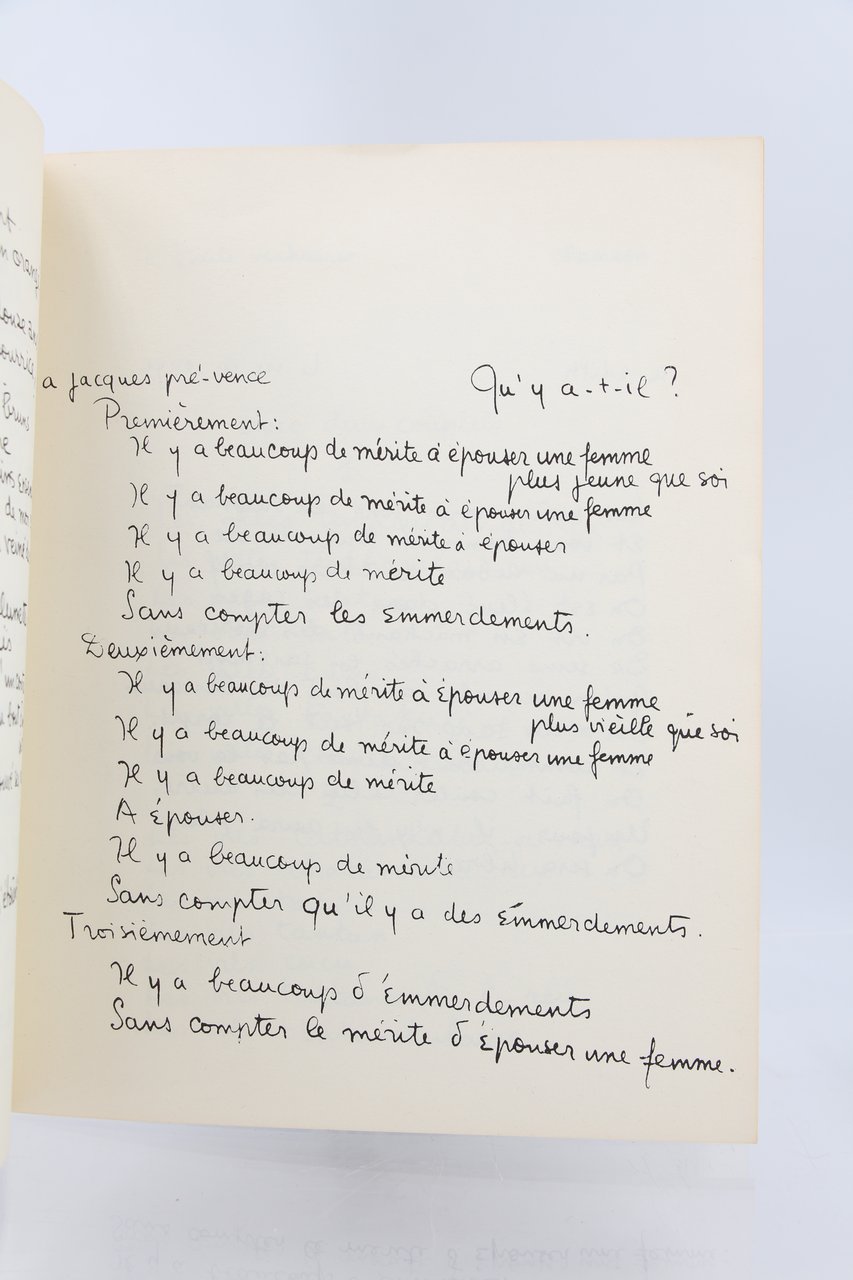 a jacques pré-vence
Qu'y a-t-il ?
Premièrement :
Il y a beaucoup de mérite à épouser une femme
plus jeune que soi
Il y a beaucoup de mérite à épouser une femme
Il y a beaucoup de mérite à épouser
Il y a beaucoup de mérite
Sans compter les emmerdements.
Deuxièmement :
Il y a beaucoup de mérite à épouser une femme
plus vieille que soi
Il y a beaucoup de mérite à épouser une femme
Il y a beaucoup de mérite
A épouser.
Il y a beaucoup de mérite
Sans compter qu'il y a des emmerdements.
Troisièmement
Il y a beaucoup d'emmerdements
Sans compter le mérite d'épouser une femme.